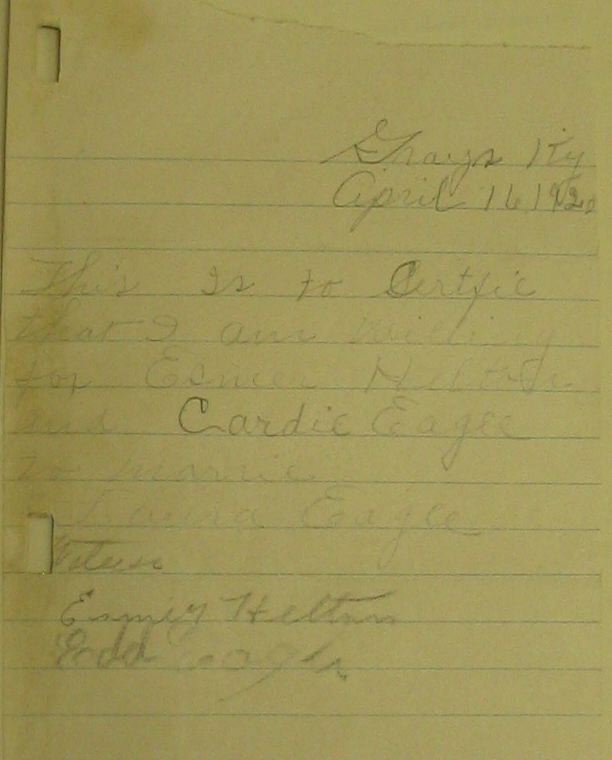 Grays Ky
April 16 1920
This Is to Certfie
that I am willing
for Esmer Helton
and Cardie Eagle
to marrie
Laura Eagle
Witness
Esmey Helton
Edd Eagle